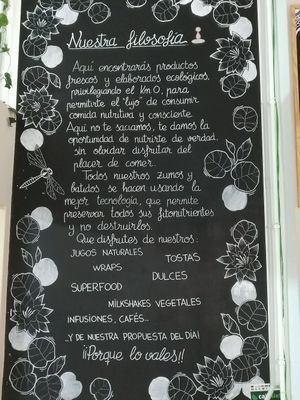 Nuestra filosofía
Aquí encontrarás productos
frescos y elaborados ecológicos,
privilegiando el Km 0, para
permitirte el "lujo" de consumir
comida nutritiva y consciente.
Aquí no te saciamos, te damos la
oportunidad de nutrirte de verdad,
sin olvidar disfrutar del
placer de comer.
Todos nuestros zumos y
batidos se hacen usando la
mejor tecnología, que permite
preservar todos sus fitonutrientes
y no destruirlos.
Que disfrutes de nuestros:
JUGOS NATURALES
TOSTAS
WRAPS
DULCES
SUPERFOOD
MILKSHAKES VEGETALES
INFUSIONES, CAFÉS...
...Y DE NUESTRA PROPUESTA DEL DÍA!
¡¡Porque lo vales!!